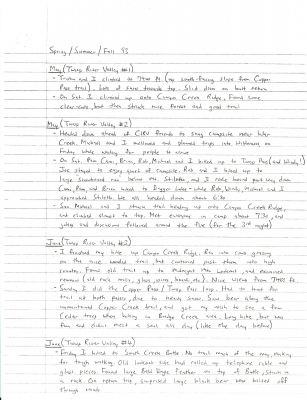 Spring / Summer / Fall 93
May (Twisp River Valley #1)
- Tristan and I climbed to 7400 ft. (on south-facing slope from Copper
Pass trail). Lots of snow towards top. Slid down on butt return.
- On Sat. I climbed up onto Canyon Creek Ridge. Found some
clear-cuts, but then struck nice forest and good trail.
May (Twisp River Valley #2)
- Headed down ahead of friends to stay complete near
Creek. Michael and I mellowed and planned trips into wilderness on
Friday while waiting for people to arrive
- On Sat. Pam, Cami, Brian, Rob, Michael and I hiked up to Twisp Pass (and Windy!)
Joe stayed to enjoy quiet of campsite. Rob and I hiked up to
large snowbound cirque below Mt. Stiletto, and I then turned part way down
Cami, Pam, and Brian hiked to Dagger Lake - while Rob, Windy, Michael and I
appreciated Stiletto. We all headed down about 6:30
- Sun. Michael and I struck out heading up onto Canyon Creek Ridge,
and climbed almost to top. Met everyone in camp about 7:30, and
jokes and discussions followed around the fire (for the 3rd night)
June (Twisp River Valley #3)
- I finished my hike up Canyon Creek Ridge. Ran into cows grazing
on the nice wooded trail, but continued past them into high
country. Found old trail up to Midnight Mtn Lookout, and examined
remains (old rock walls, glass, wires, boards, etc.). Nice views from 7488 ft.
- Sunday I did the Copper Pass / Twisp Pass loop. Had to hunt for
trail at both passes, due to heavy snow. Saw bear along the
unmaintained Copper Creek trail, and got my wish to see a few
Cedar trees when hiking on Bridge Creek side. Long hike, but was
fun and didn't meet a soul all day (like the day before)
June (Twisp River Valley #4)
- Friday I hiked to South Creek Butte. No trail most of the way, making
for tough walking. Old lookout site had rolled up telephone cable and
glass pieces. Found large Bald Eagle feather on top of Butte, stuck in
a rock. On return trip, surprised large black bear who bolted off
through woods